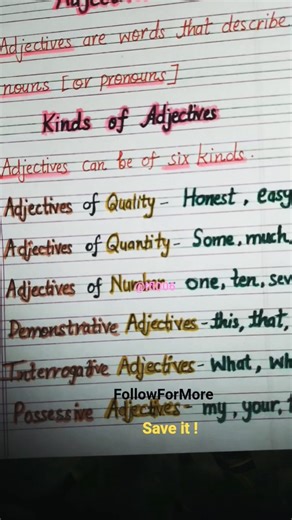 Adjectives are words that describe
nouns [or pronouns]
Kinds of Adjectives
Adjectives can be of six kinds.
Adjectives of Quality - Honest, easy
Adjectives of Quantity - Some, much,
Adjectives of Number - one, ten, sev
Demonstrative Adjectives - this, that,
Interrogative Adjectives - What, Wh
FollowForMore
Possessive Adjectives - my, your, t
Save it !